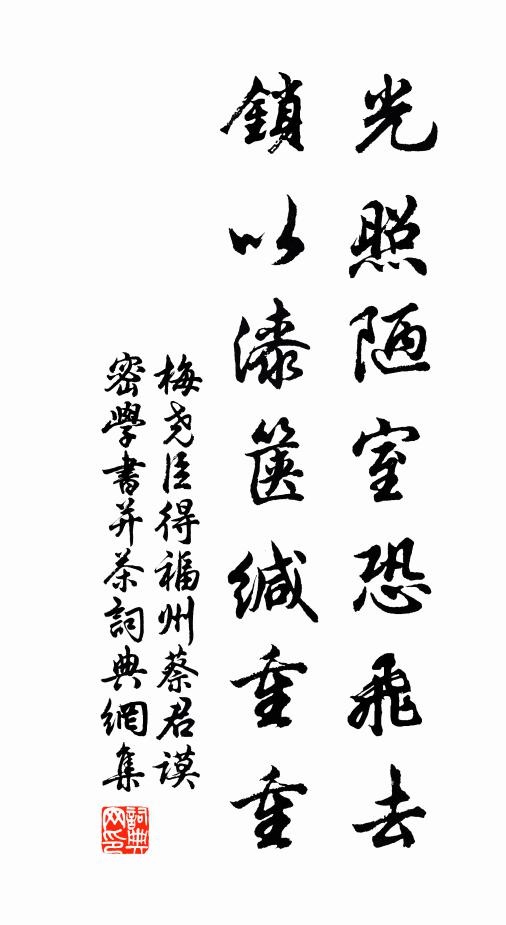 光照陋室恐飛去
鎖以漆篋緘重重
梅尧臣得福州蔡君謨
密學書并茶詞典網集
詞典网印